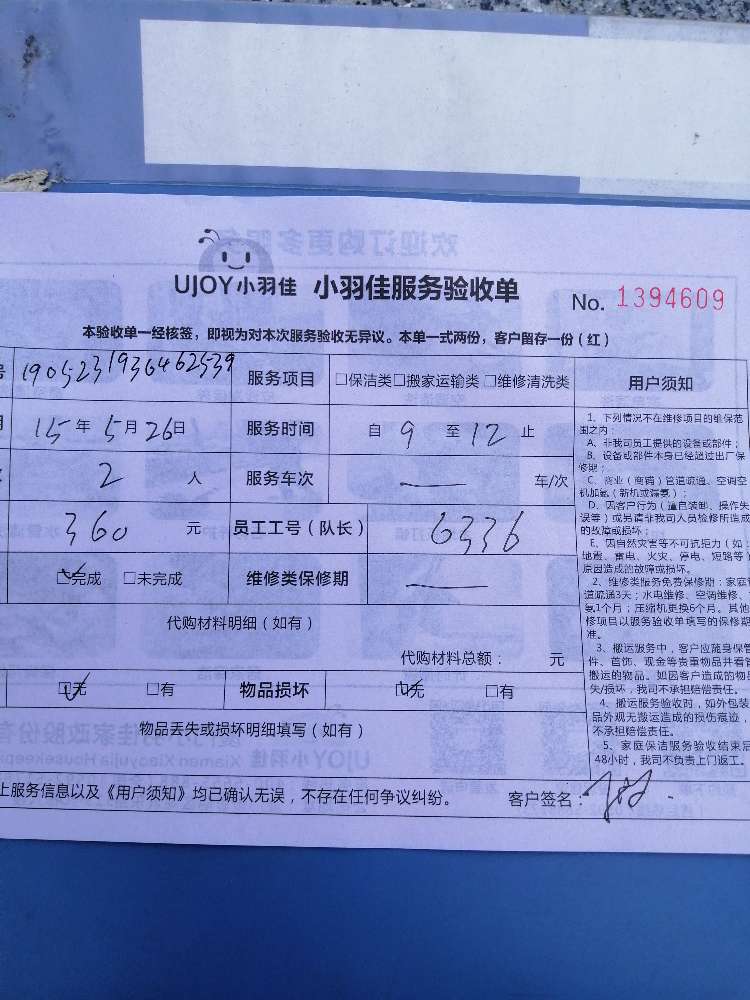 UJOY小羽佳 小羽佳服务验收单 No. 1394609
本验收单一经核签，即视为对本次服务验收无异议。本单一式两份，客户留存一份（红）
号 1905231936462539 服务项目 □保洁类□搬家运输类 □维修清洗类 用户须知
15年 5月26日 服务时间 自 9 至 12 止
2 人 服务车次 — 车/次
360 元 员工工号（队长） 6336
完成 □未完成 维修类保修期 —
代购材料明细（如有）
代购材料总额： 元
无 □有 物品损坏 无 □有
物品丢失或损坏明细填写（如有）
上服务信息以及《用户须知》均已确认无误，不存在任何争议纠纷。 客户签名：
1、下列情况不在维修项目的维保范
围之内：
A、非我司员工提供的设备或部件；
B、设备或部件本身已经超过出厂保
修期；
C、商业（商铺）管道疏通、空调空
机加氟（新机或漏氟）；
D、因客户行为（擅自装卸、操作失
误等）或另请非我司人员检修所造成
的故障或损坏；
E、因自然灾害等不可抗拒力（如：
地震、雷电、火灾、停电、短路等）
原因造成的故障或损坏。
2、维修类服务免费保修期：家庭管
道疏通3天；水电维修、空调维修、
氟1个月；压缩机更换6个月。其他
修项目以服务验收单填写的保修期
准。
3、搬运服务中，客户应随身保管
件、首饰、现金等贵重物品并看管
搬运的物品。如因客户造成的物品
失/损坏，我司不承担赔偿责任。
4、搬运服务验收时，如外包装
品外观无搬运造成的损伤痕迹，
不承担赔偿责任。
5、家庭保洁服务验收结束后
48小时，我司不负责上门返工。